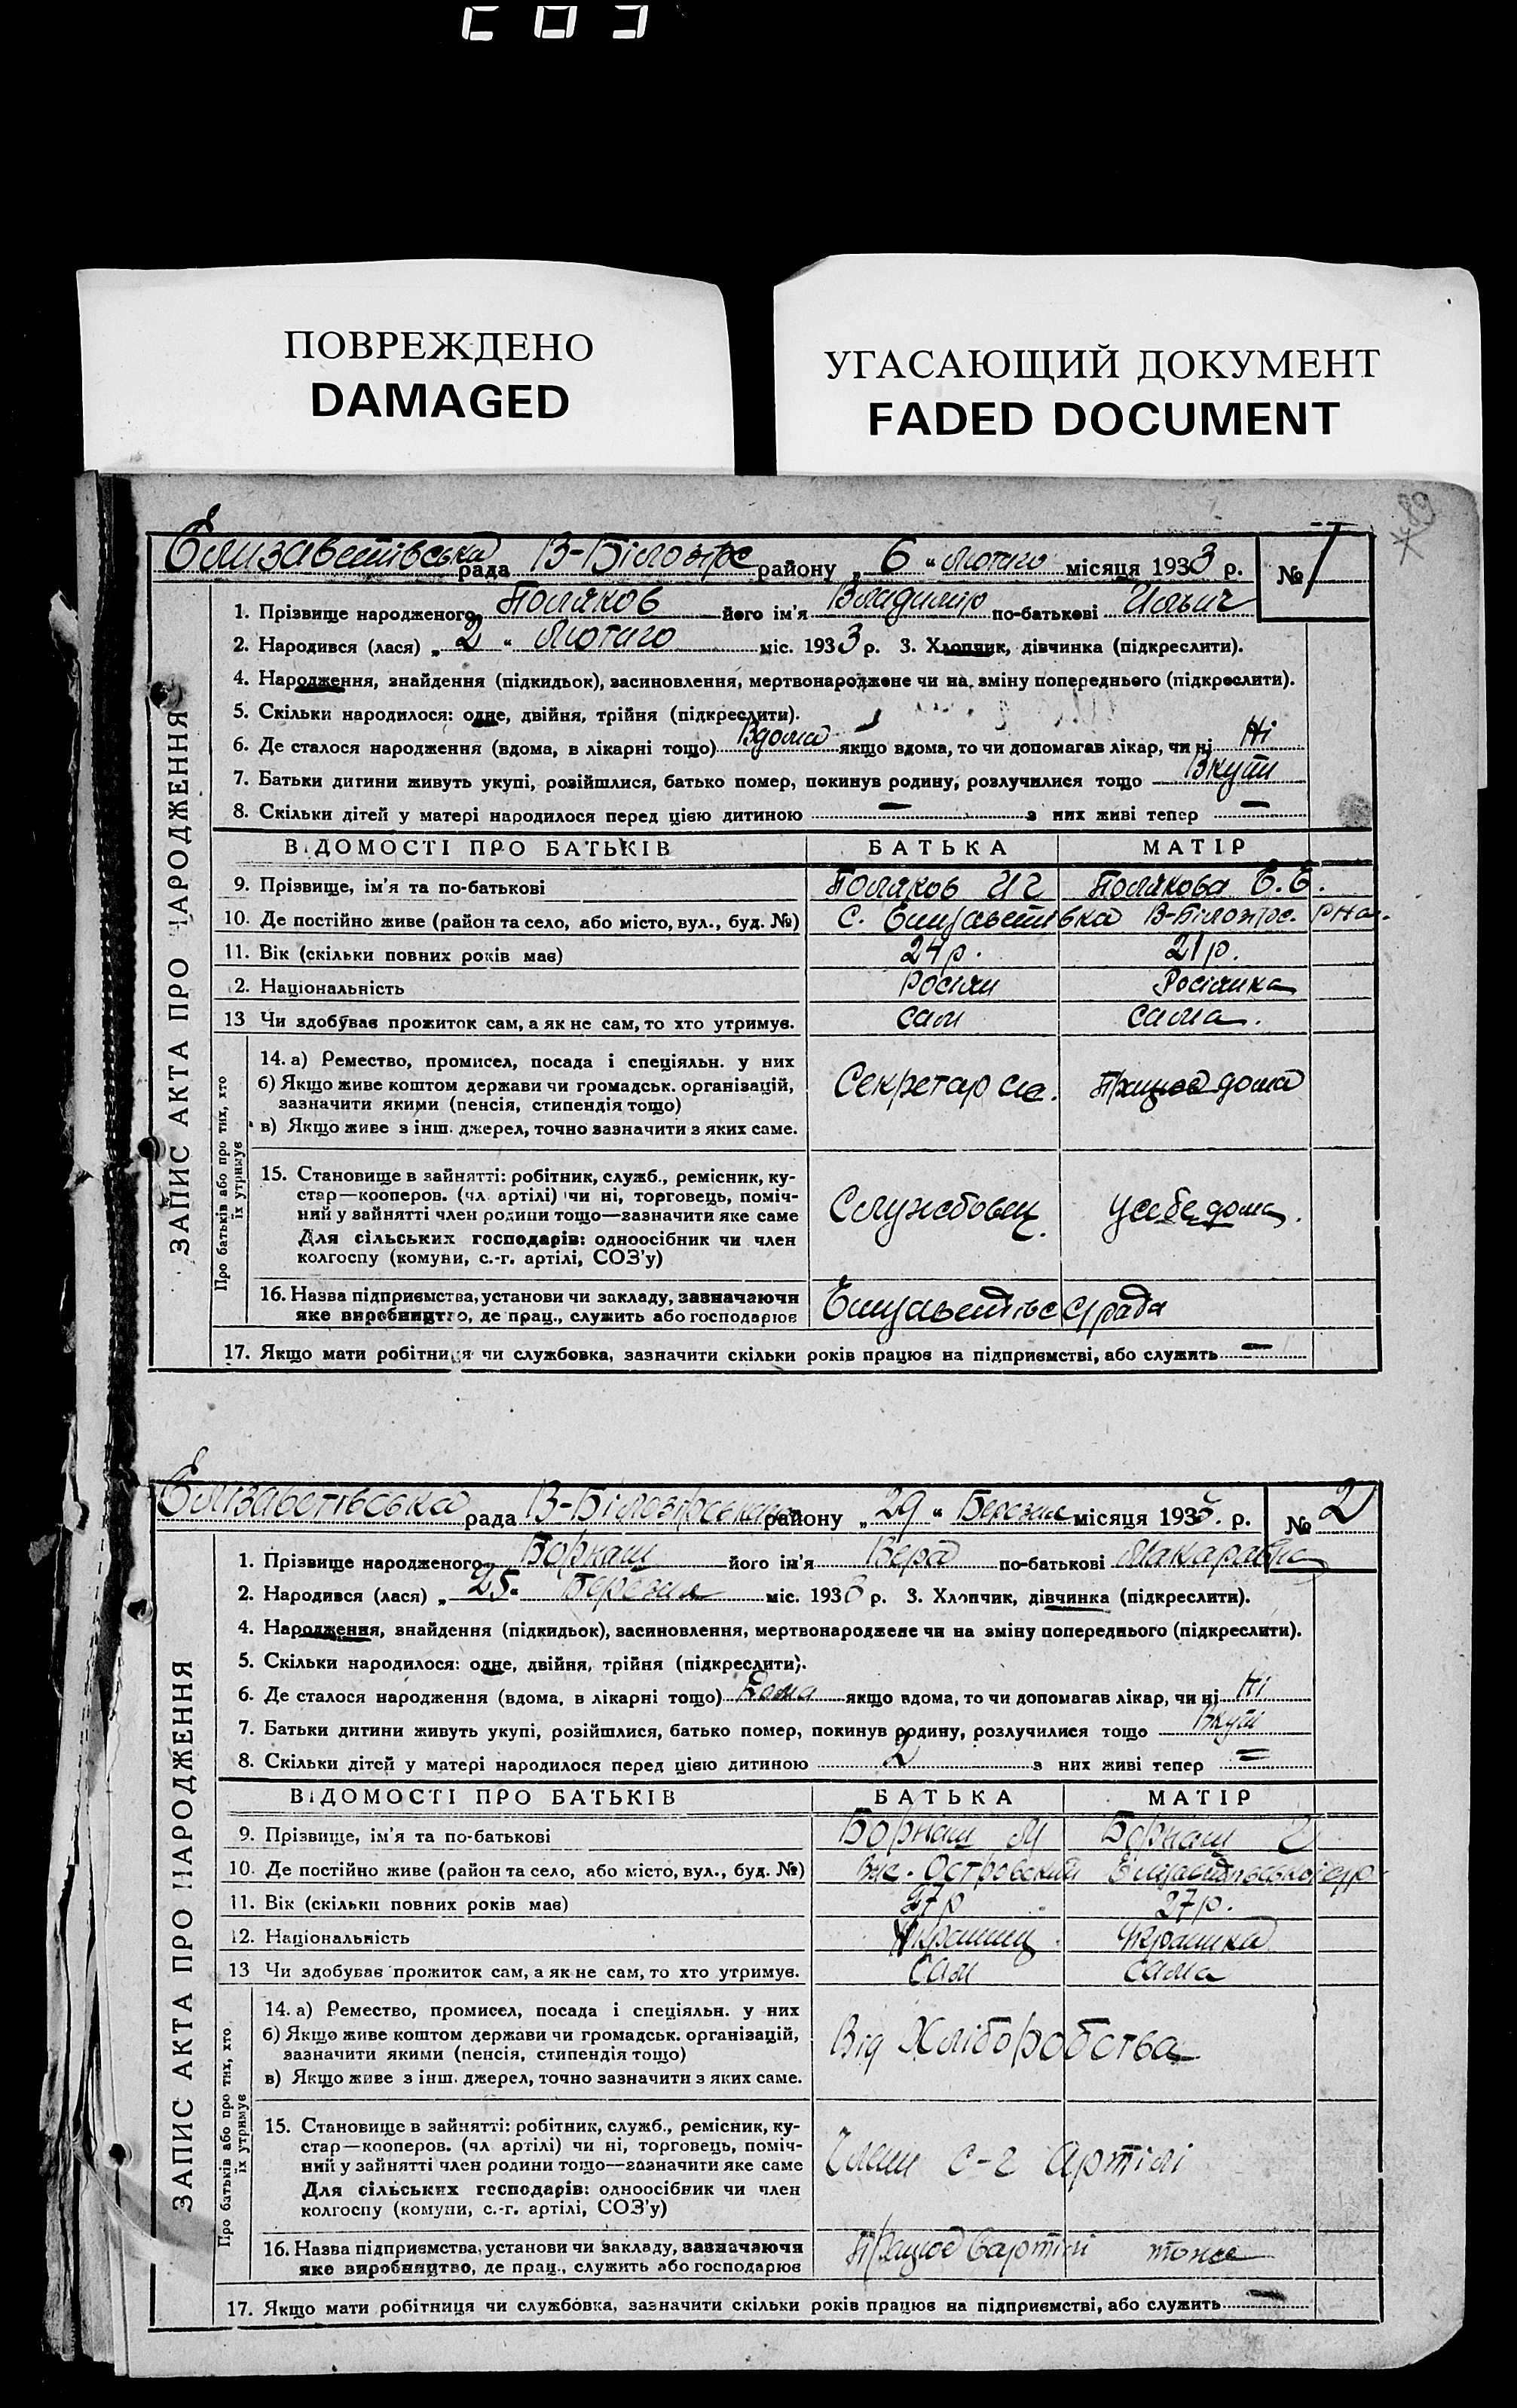 ПОВРЕЖДЕНО
DAMAGED
УГАСАЮЩИЙ ДОКУМЕНТ
FADED DOCUMENT
89
Єлизаветівська рада В-Білозірс району „ 6 “ лютого місяця 1933 р. № 1
ЗАПИС АКТА ПРО НАРОДЖЕННЯ
1. Прізвище народженого Поляков його ім’я Владимир по-батькові Ильич
2. Народився (лася) „ 2 “ Лютого міс. 1933 р. 3. Хлопчик, дівчинка (підкреслити).
4. Народження, знайдення (підкидьок), засиновлення, мертвонароджене чи на зміну попереднього (підкреслити).
5. Скільки народилося: одне, двійня, трійня (підкреслити).
6. Де сталося народження (вдома, в лікарні тощо) Вдома якщо вдома, то чи допомагав лікар, чи ні Ні
7. Батьки дитини живуть укупі, розійшлися, батько помер, покинув родину, розлучилися тощо Вкупи
8. Скільки дітей у матері народилося перед цією дитиною — з них живі тепер —
ВІДОМОСТІ ПРО БАТЬКІВ БАТЬКА МАТІР
9. Прізвище, ім’я та по-батькові Поляков И Г Полякова Е. Е.
10. Де постійно живе (район та село, або місто, вул., буд. №) С. Єлизаветівка В-Білозірс. рна.
11. Вік (скільки повних років має) 24 р. 21 р.
2. Національність Росіян Росіянка
13 Чи здобував прожиток сам, а як не сам, то хто утримує. сам сама.
Про батьків або про тих, хто їх утримує
14. а) Ремество, промисел, посада і спеціяльн. у них
б) Якщо живе коштом держави чи громадськ. організацій,
зазначити якими (пенсія, стипендія тощо)
в) Якщо живе з інш. джерел, точно зазначити з яких саме.
Секретар с/с. Працює дома
15. Становище в зайнятті: робітник, служб., ремісник, ку-
стар—кооперов. (чл. артілі) чи ні, торговець, поміч-
ний у зайнятті член родини тощо—зазначити яке саме
Для сільських господарів: одноосібник чи член
колгоспу (комуни, с.-г. артілі, СОЗ’у)
Службовец. У себе дома.
16. Назва підприємства, установи чи закладу, зазначаючи
яке виробництво, де прац., служить або господарює
Єлизаветівс с/рада
17. Якщо мати робітниця чи службовка, зазначити скільки років працює на підприємстві, або служить —
Єлизаветівська рада В-Білозірського району „ 29 “ Березня місяця 1933 р. № 2
ЗАПИС АКТА ПРО НАРОДЖЕННЯ
1. Прізвище народженого Борнаш його ім’я Вера по-батькові Макаравна
2. Народився (лася) „ 25 “ Березня міс. 1933 р. 3. Хлопчик, дівчинка (підкреслити).
4. Народження, знайдення (підкидьок), засиновлення, мертвонароджене чи на зміну попереднього (підкреслити).
5. Скільки народилося: одне, двійня, трійня (підкреслити).
6. Де сталося народження (вдома, в лікарні тощо) Дома якщо вдома, то чи допомагав лікар, чи ні Ні
7. Батьки дитини живуть укупі, розійшлися, батько помер, покинув родину, розлучилися тощо Вкупі
8. Скільки дітей у матері народилося перед цією дитиною 2 з них живі тепер =
ВІДОМОСТІ ПРО БАТЬКІВ БАТЬКА МАТІР
9. Прізвище, ім’я та по-батькові Борнаш М Борнаш
10. Де постійно живе (район та село, або місто, вул., буд. №) Островский Єлизаветівської с/р
11. Вік (скільки повних років має) 27 р 27 р.
12. Національність Українец Українка
13 Чи здобував прожиток сам, а як не сам, то хто утримує. Сам сама
Про батьків або про тих, хто їх утримує
14. а) Ремество, промисел, посада і спеціяльн. у них
б) Якщо живе коштом держави чи громадськ. організацій,
зазначити якими (пенсія, стипендія тощо)
в) Якщо живе з інш. джерел, точно зазначити з яких саме.
Від Хліборобства
15. Становище в зайнятті: робітник, служб., ремісник, ку-
стар—кооперов. (чл артілі) чи ні, торговець, поміч-
ний у зайнятті член родини тощо—зазначити яке саме
Для сільських господарів: одноосібник чи член
колгоспу (комуни, с.-г. артілі, СОЗ’у)
Члени с-г Артілі
16. Назва підприємства, установи чи закладу, зазначаючи
яке виробництво, де прац., служить або господарює
Працює в артілі тоже
17. Якщо мати робітниця чи службовка, зазначити скільки років працює на підприємстві, або служить —